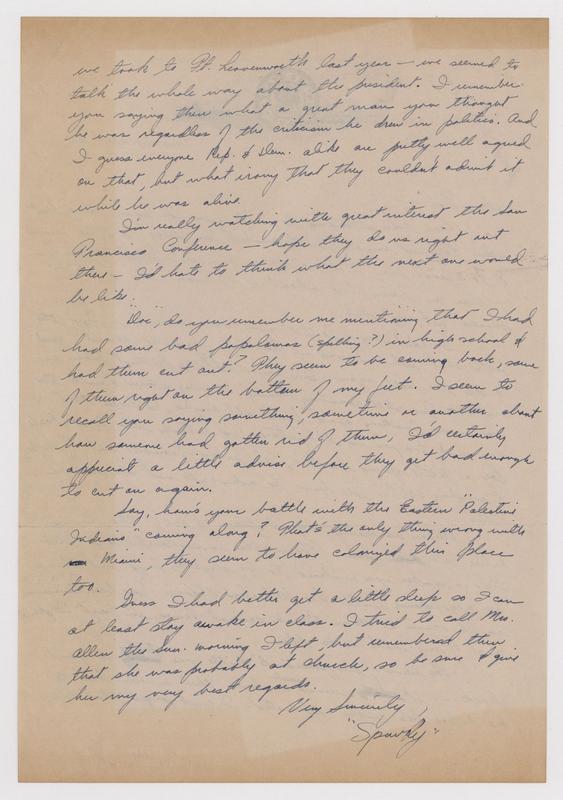 we took to Ft. Leavenworth last year — we seemed to
talk the whole way about the president. I remember
you saying then what a great man you thought
he was regardless of the criticism he drew in politics. And
I guess everyone Rep. & Dem. alike are pretty well agreed
on that, but what irony that they couldn't admit it
while he was alive.
I'm really watching with great interest the San
Francisco Conference — hope they do us right out
there — I'd hate to think what the next one would
be like.
"Doc", do you remember me mentioning that I had
had some bad papalomas (spelling?) in high school &
had them cut out? They seem to be coming back, some
of them right on the bottom of my feet. I seem to
recall you saying something, sometime or another about
how someone had gotten rid of them, I'd certainly
appreciate a little advise before they get bad enough
to cut on again.
Say, how's your battle with the Eastern "Palestine
Indians" coming along? That's the only thing wrong with
Miami, they seem to have colonized this place
too.
Guess I had better get a little sleep so I can
at least stay awake in class. I tried to call Mrs.
Allen the Sun. morning I left, but remembered then
that she was probably at church, so be sure & give
her my very best regards.
Very Sincerely,
"Sparky"